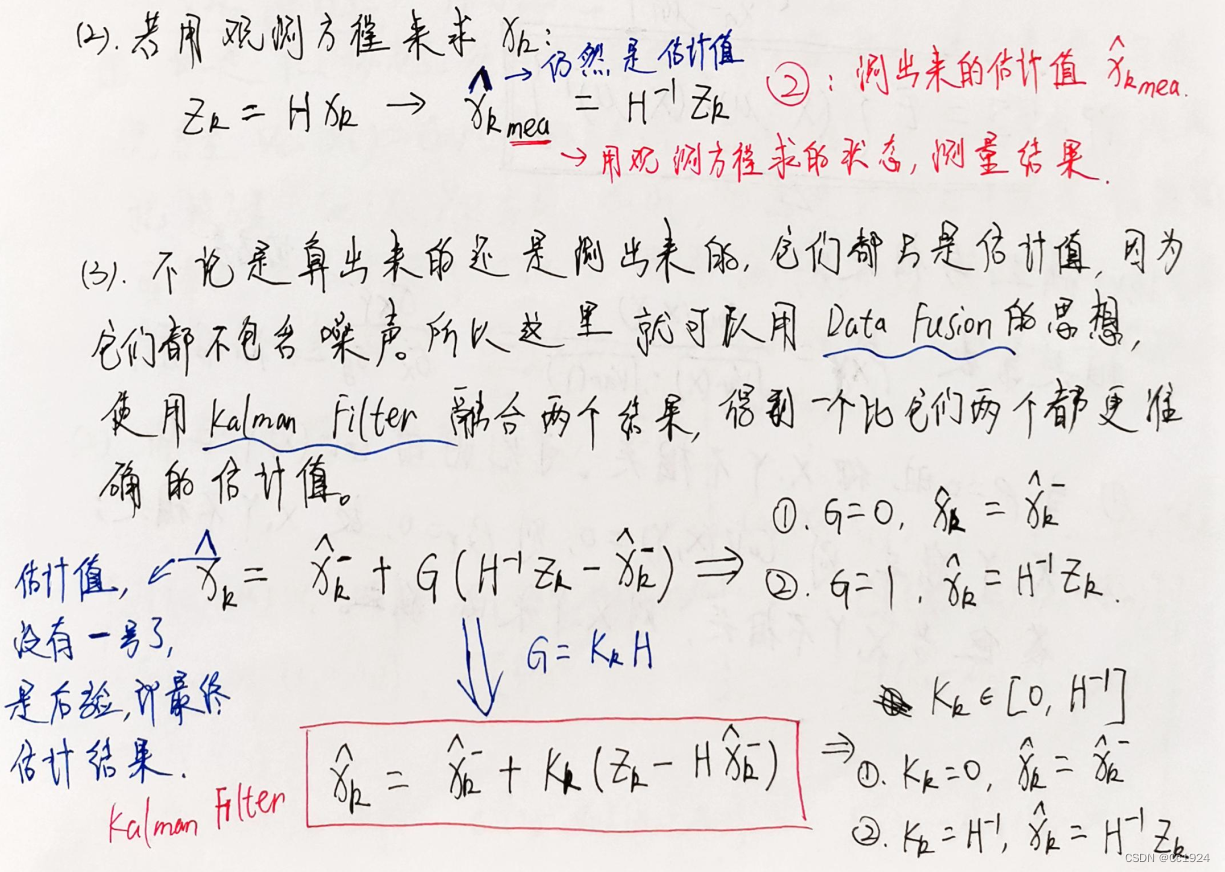 (2). 若用观测方程来求 x_k:
→ 仍然是估计值
z_k = H x_k → x̂_k mea = H⁻¹ z_k
②: 测出来的估计值 x̂_k mea.
→ 用观测方程求的状态, 测量结果.
(3). 不论是算出来的还是测出来的, 它们都只是估计值, 因为
它们都不包含噪声。所以这里就可以用 Data Fusion 的思想,
使用 Kalman Filter 融合两个结果, 得到一个比它们两个都更准
确的估计值。
x̂_k = x̂_k⁻ + G(H⁻¹ z_k - x̂_k⁻) ⇒
①. G=0, x̂_k = x̂_k⁻
②. G=1, x̂_k = H⁻¹ z_k.
估计值, ←
没有一号了,
是后验, 即最终
估计结果.
G = K_k H
Kalman Filter
x̂_k = x̂_k⁻ + K_k (z_k - H x̂_k⁻)
K_k ∈ [0, H⁻¹]
⇒ ①. K_k=0, x̂_k = x̂_k⁻
②. K_k = H⁻¹, x̂_k = H⁻¹ z_k